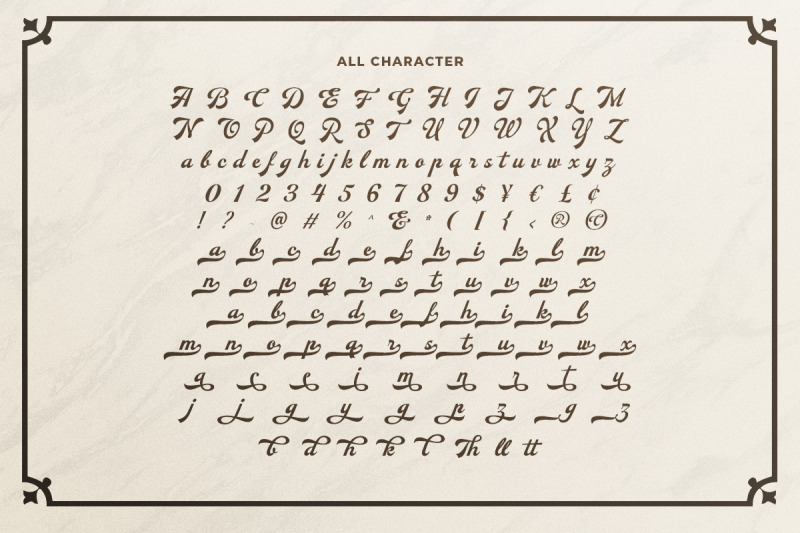 ALL CHARACTER
A B C D E F G H I J K L M
N O P Q R S T U V W X Y Z
a b c d e f g h i j k l m n o p q r s t u v w x y z
0 1 2 3 4 5 6 7 8 9 $ ¥ € £ ¢
! ? @ # % ^ & * ( [ { < ® ©
a b c d e f h i k l m
n o p q r s t u v w x
a b c d e f h i k l
m n o p q r s t u v w x
a c e i m n r t u
j j g y g p z g z
b d h k l Th ll tt